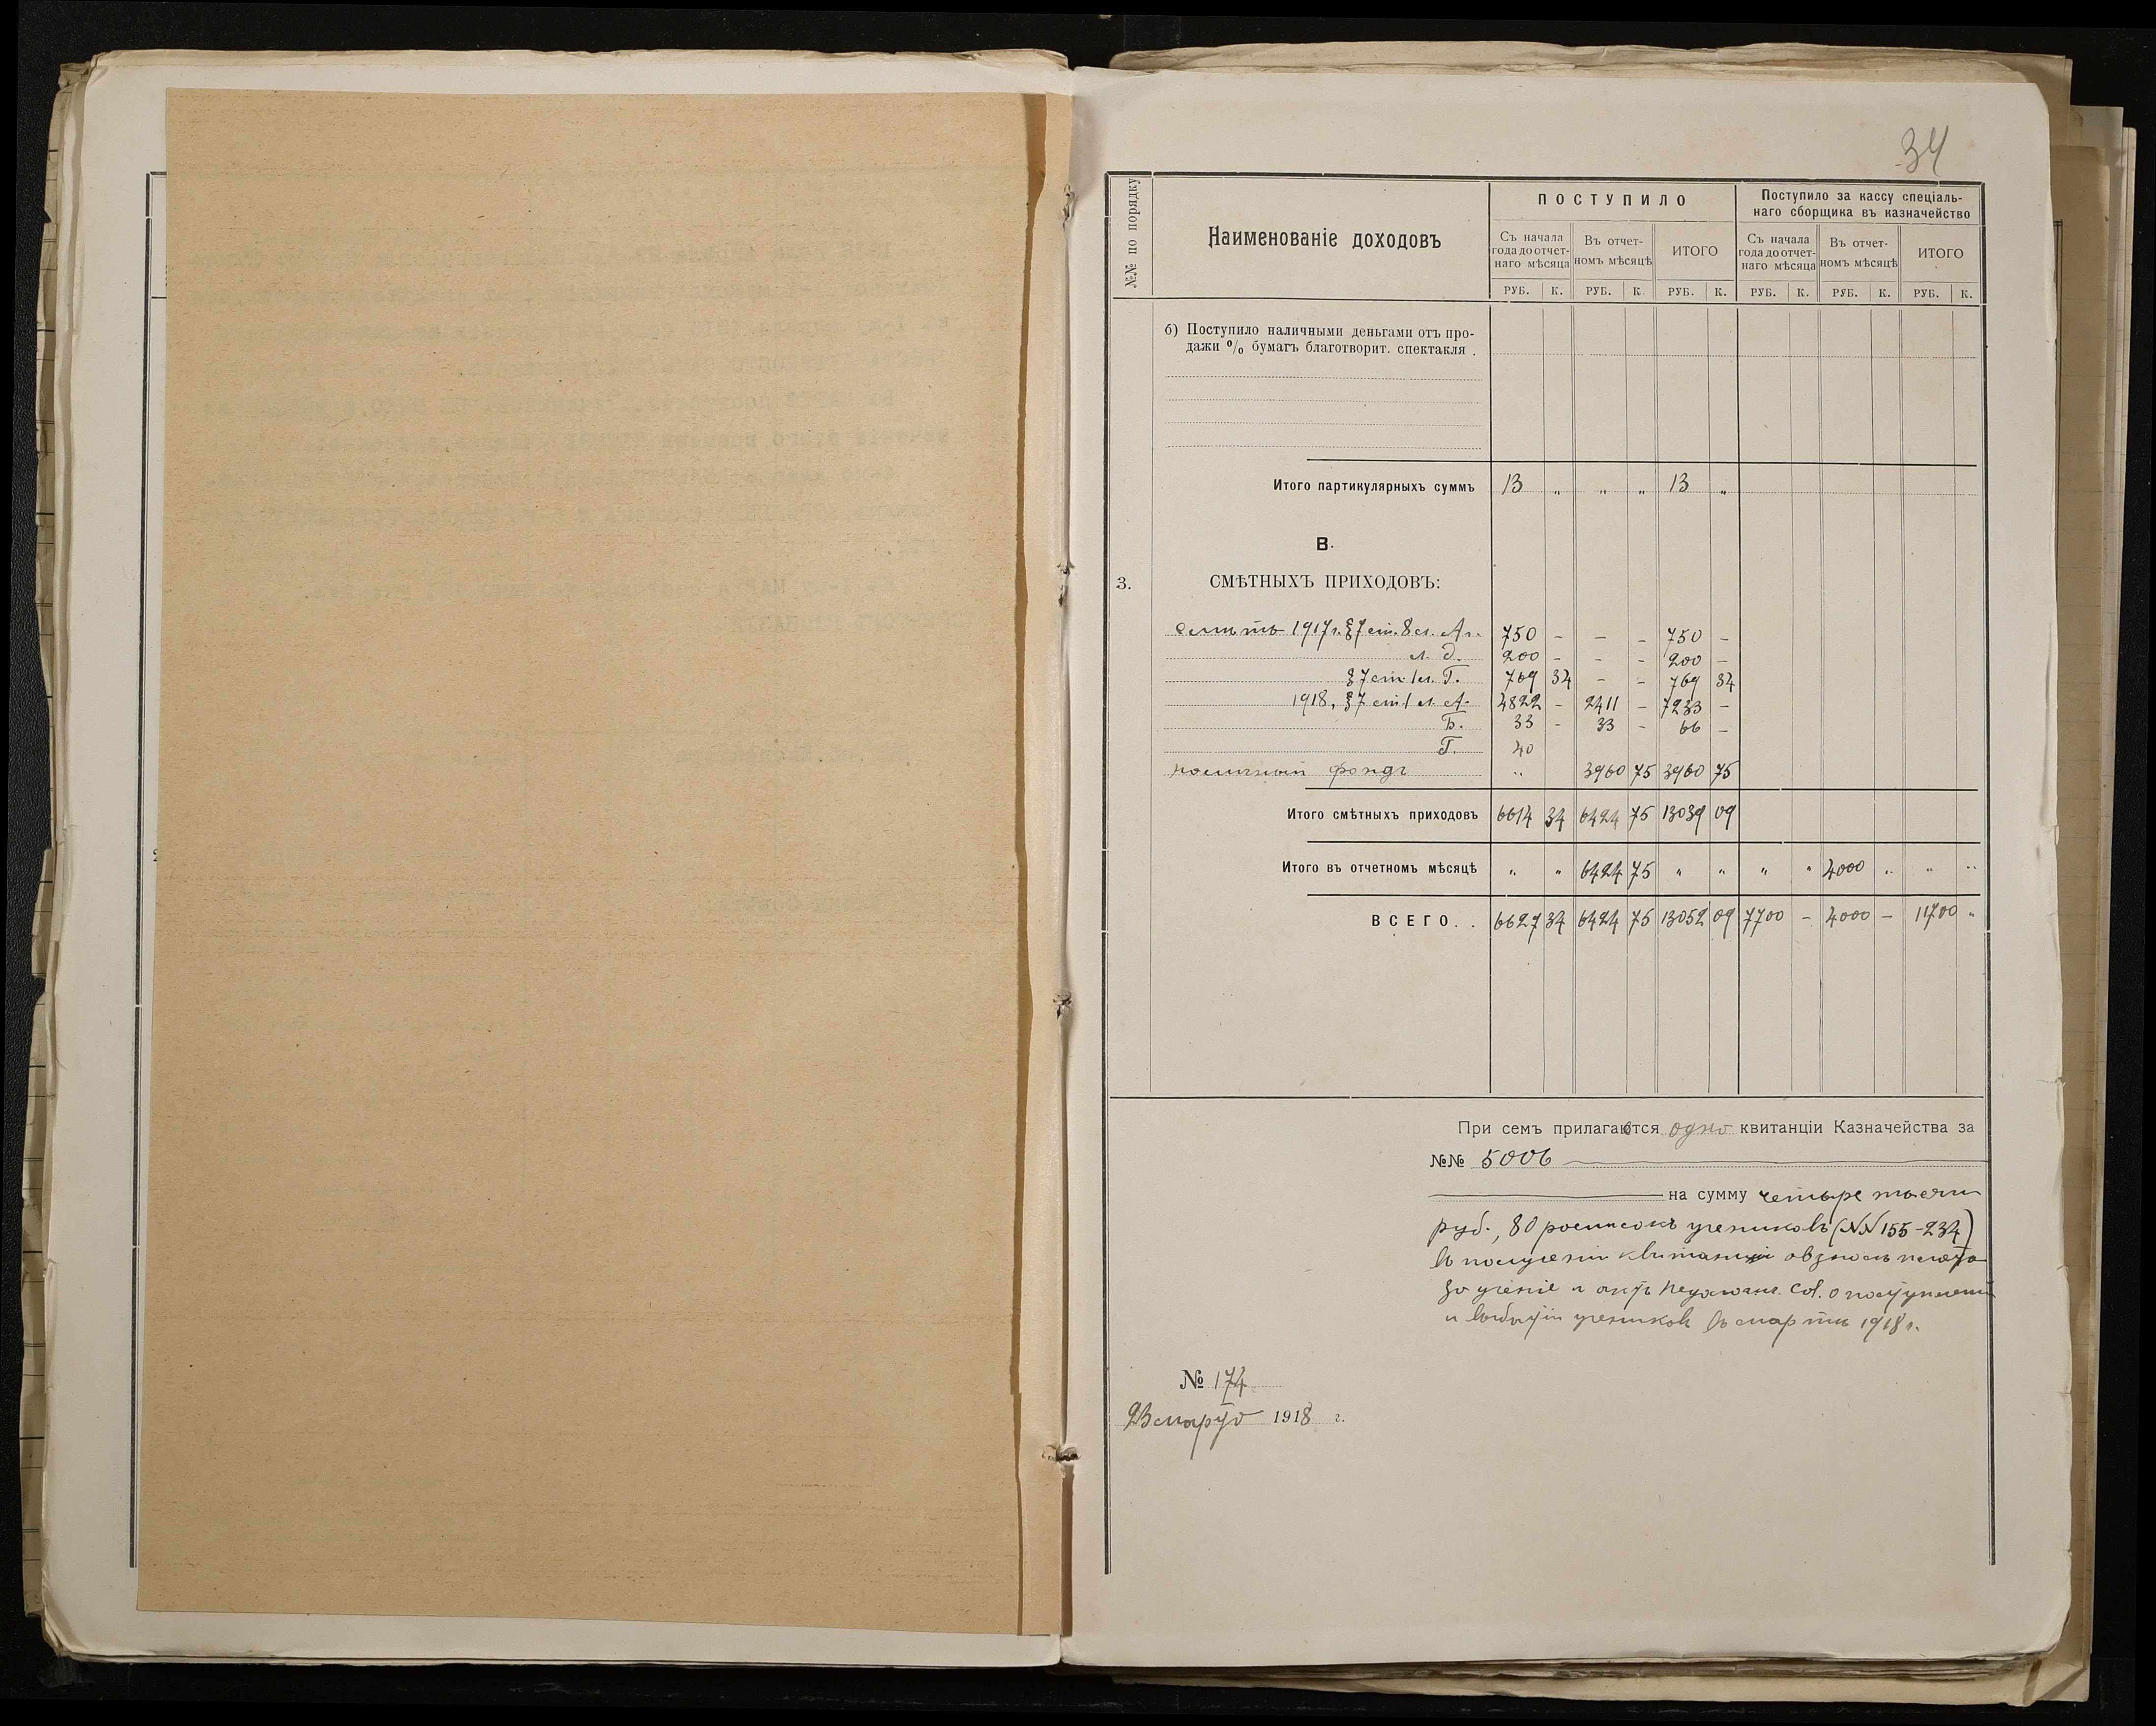 34
№№ по порядку
Наименованіе доходовъ
ПОСТУПИЛО
Поступило за кассу спеціаль-
наго сборщика въ казначейство
Съ начала
года до отчет-
наго мѣсяца
Въ отчет-
номъ мѣсяцѣ
ИТОГО
Съ начала
года до отчет-
наго мѣсяца
Въ отчет-
номъ мѣсяцѣ
ИТОГО
РУБ. К. РУБ. К. РУБ. К. РУБ. К. РУБ. К. РУБ. К.
б) Поступило наличными деньгами отъ про-
дажи % бумагъ благотворит. спектакля .
Итого партикулярныхъ суммъ 13 „ „ „ 13 „
В.
3. СМѢТНЫХЪ ПРИХОДОВЪ:
1917 г. §7 ст. 8 А 750 – – – 750 –
200 – – – 200 –
§7 ст. 1 Г. 769 34 – – 769 34
1918, §7 ст. 1 А. 4822 – 2411 – 7233 –
Б. 33 – 33 – 66 –
Г. 40
фондъ „ 3960 75 3960 75
Итого смѣтныхъ приходовъ 6614 34 6424 75 13039 09
Итого въ отчетномъ мѣсяцѣ „ „ 6424 75 „ „ „ „ 4000 „ „ „
ВСЕГО. . 6627 34 6424 75 13052 09 7700 – 4000 – 11700 „
При семъ прилагается одно квитанціи Казначейства за
№№ 5006
на сумму четыре тысячи
руб., 80 росписокъ учениковъ (№№ 155-234)
въ полученіи квитанцій о взносѣ платы
за ученіе и актъ Педагогич. Сов. о поступленіи
и выбытіи учениковъ въ мартѣ 1918 г.
№ 174
марта 1918 г.